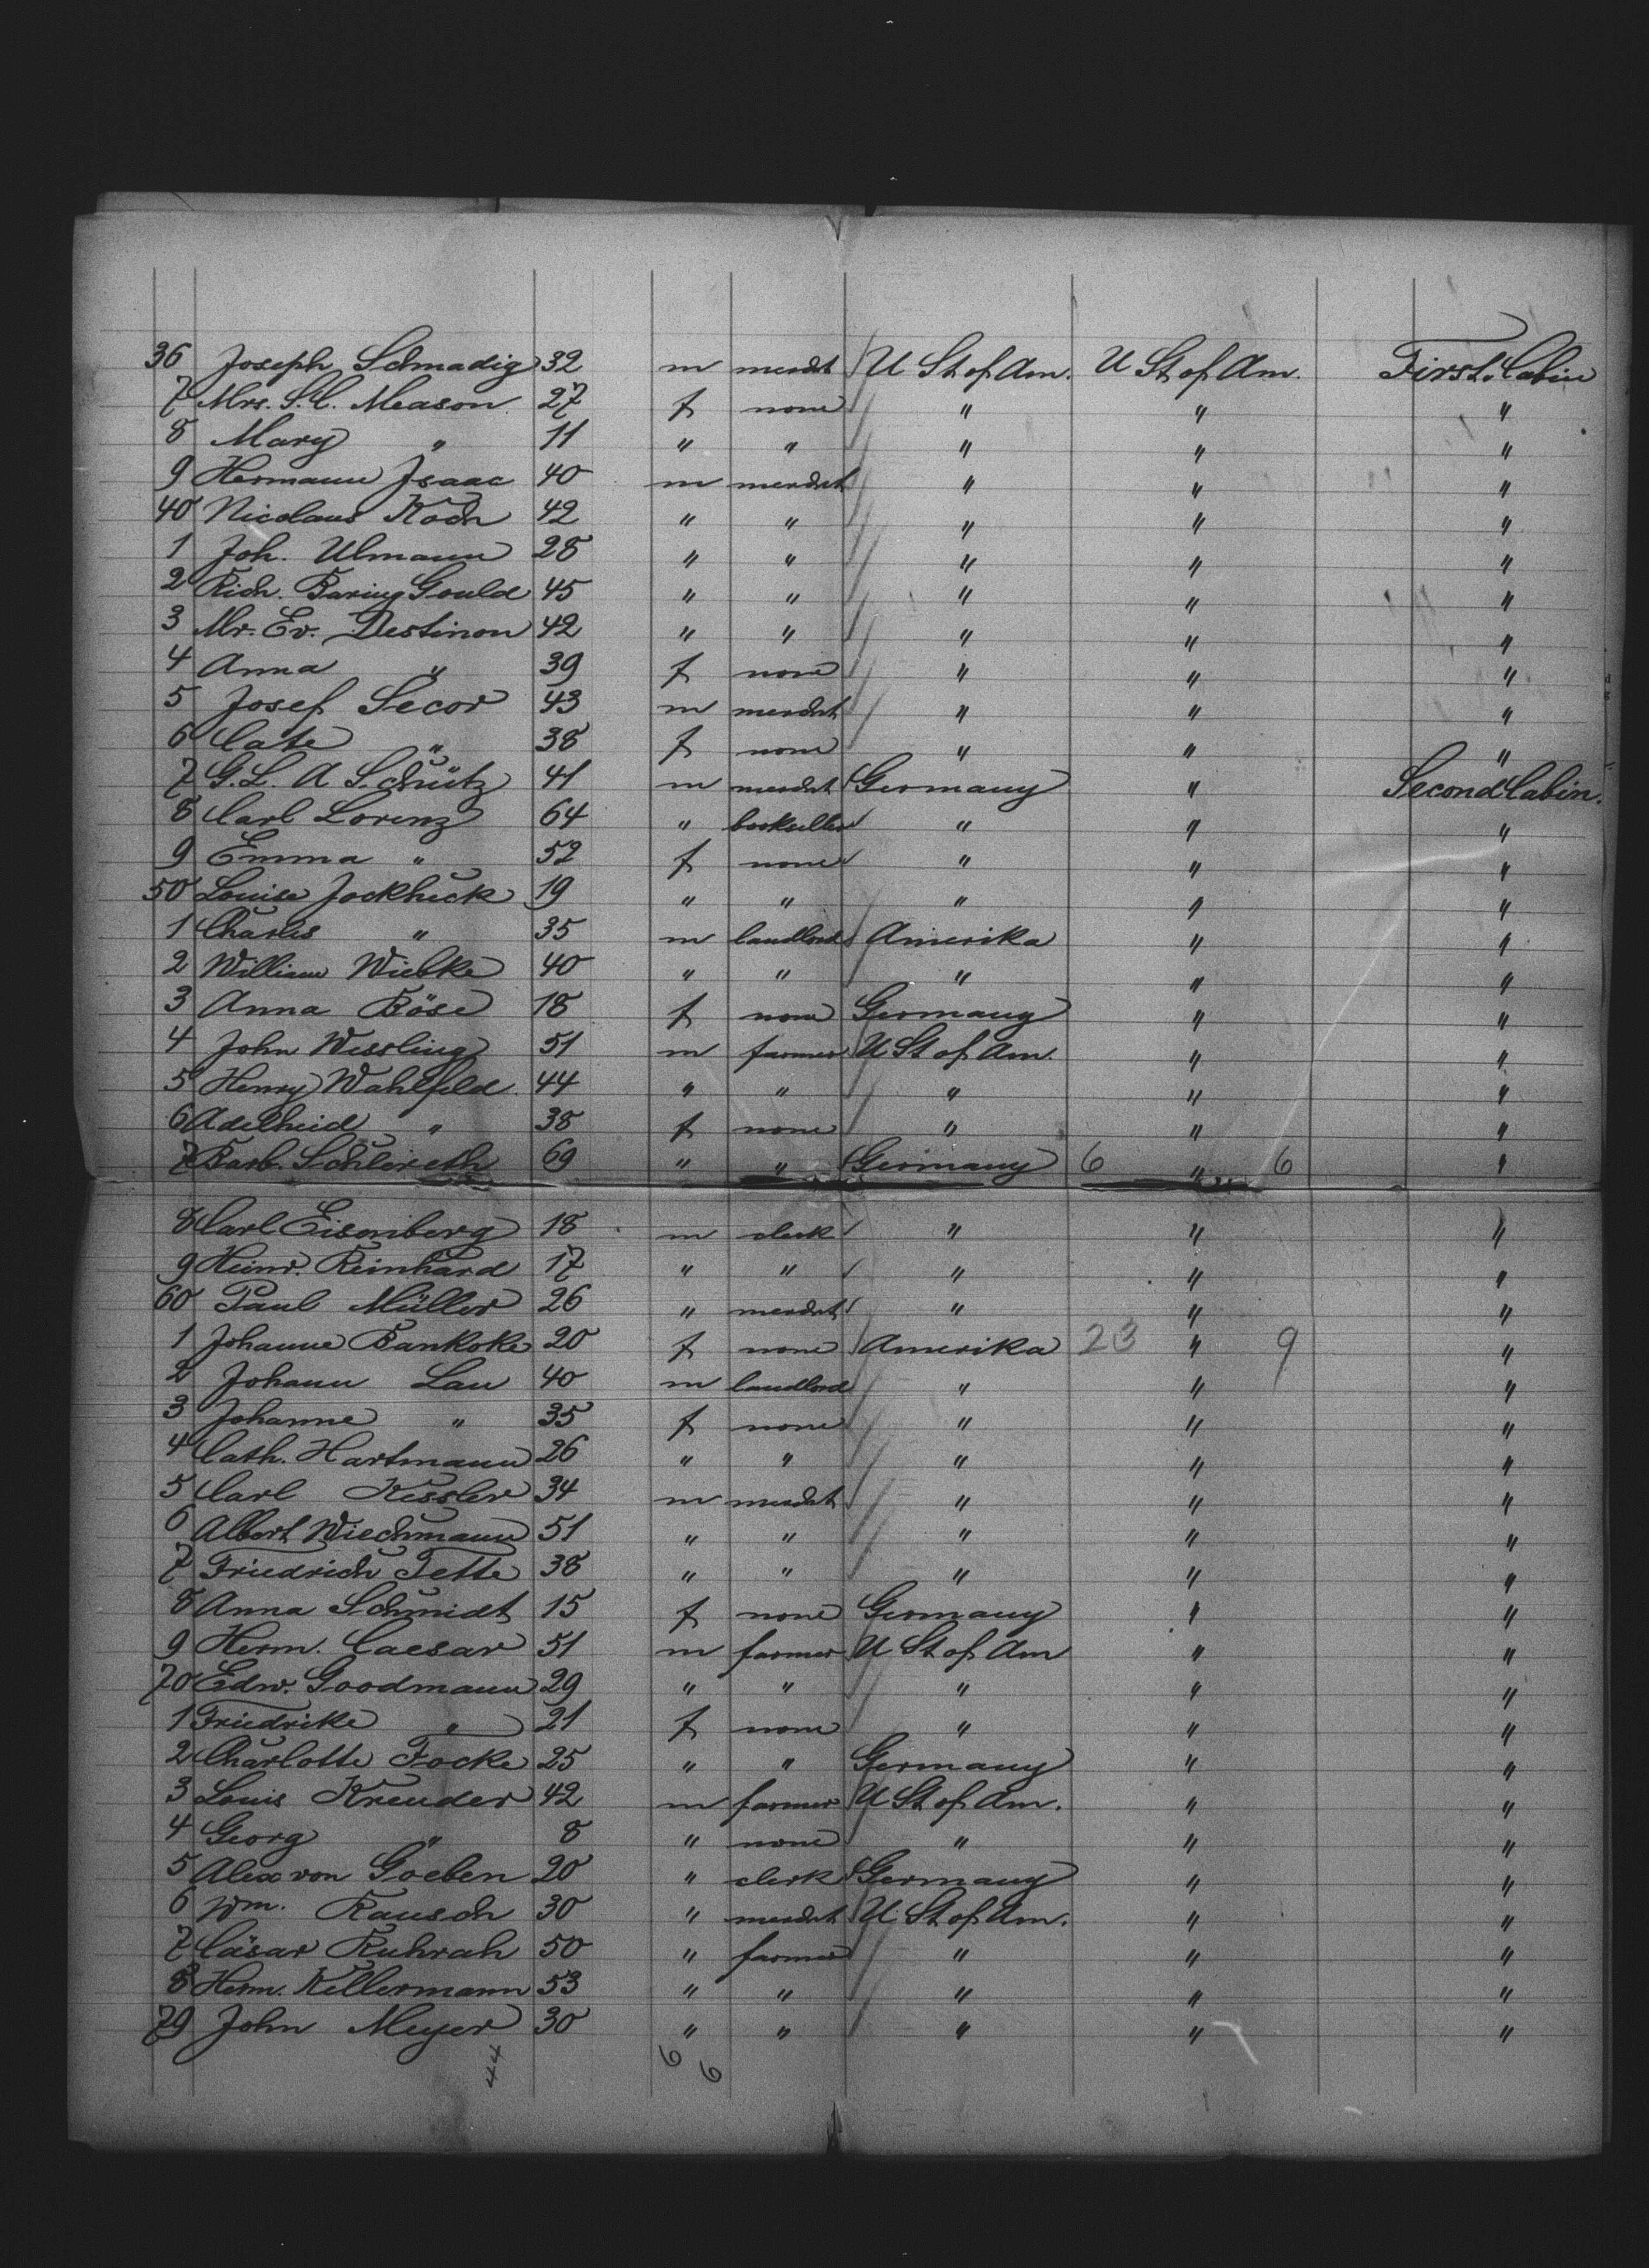 36 Joseph Schmadig 32 m mercht U St of Am. U St of Am. First Cabin
7 Mrs. S. C. Meason 27 f none " " "
8 Mary " 11 " " " " "
9 Hermann Isaac 40 m mercht " " "
40 Nicolaus Koch 42 " " " " "
1 Joh. Ulmann 28 " " " " "
2 Rich. Baring Gould 45 " " " " "
3 Mr. Ev. Destinon 42 " " " " "
4 Anna " 39 f none " " "
5 Josef Secor 43 m mercht " " "
6 Cate " 38 f none " " "
7 G. L. A Schütz 41 m mercht Germany " Second Cabin.
8 Carl Lorenz 64 " bookseller " " "
9 Emma " 52 f none " " "
50 Louise Jockheck 19 " " " " "
1 Charles " 35 m landlord Amerika " "
2 William Wiebke 40 " " " " "
3 Anna Böse 18 f none Germany " "
4 John Wessling 51 m farmer U St of Am. " "
5 Henry Wahlfeld 44 " " " " "
6 Adelheid " 38 f none " " "
7 Barb. Schlereth 69 " " Germany 6 " 6 "
8 Carl Eisenberg 18 m clerk " " "
9 Heinr. Reinhard 17 " " " " "
60 Paul Müller 26 " mercht " " "
1 Johanne Bankoke 20 f none Amerika 23 " 9 "
2 Johann Lau 40 m landlord " " "
3 Johanne " 35 f none " " "
4 Cath. Hartmann 26 " " " " "
5 Carl Kessler 34 m mercht " " "
6 Albert Wiechmann 51 " " " " "
7 Friedrich Tette 38 " " " " "
8 Anna Schmidt 15 f none Germany " "
9 Herm. Caesar 51 m farmer U St of Am " "
70 Edw. Goodmann 29 " " " " "
1 Friedrike " 21 f none " " "
2 Charlotte Focke 25 " " Germany " "
3 Louis Kreuder 42 m farmer U St of Am. " "
4 Georg " 8 " none " " "
5 Alex von Goeben 20 " clerk Germany " "
6 Wm. Rausch 30 " mercht U. St of Am. " "
7 Cäsar Ruhrah 50 " farmer " " "
8 Herm. Kellermann 53 " " " " "
79 John Meyer 30 " " " " "
44 6 6